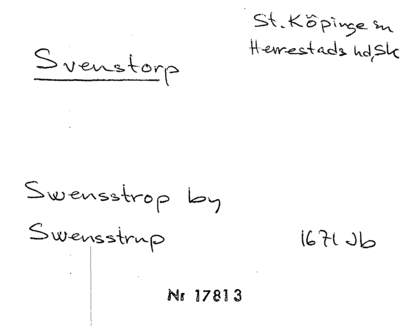 St. Köpinge sn
Herrestads hd, Sk
Svenstorp
Swensstrop by
Swensstrup 1671 Jb
Nr 17813